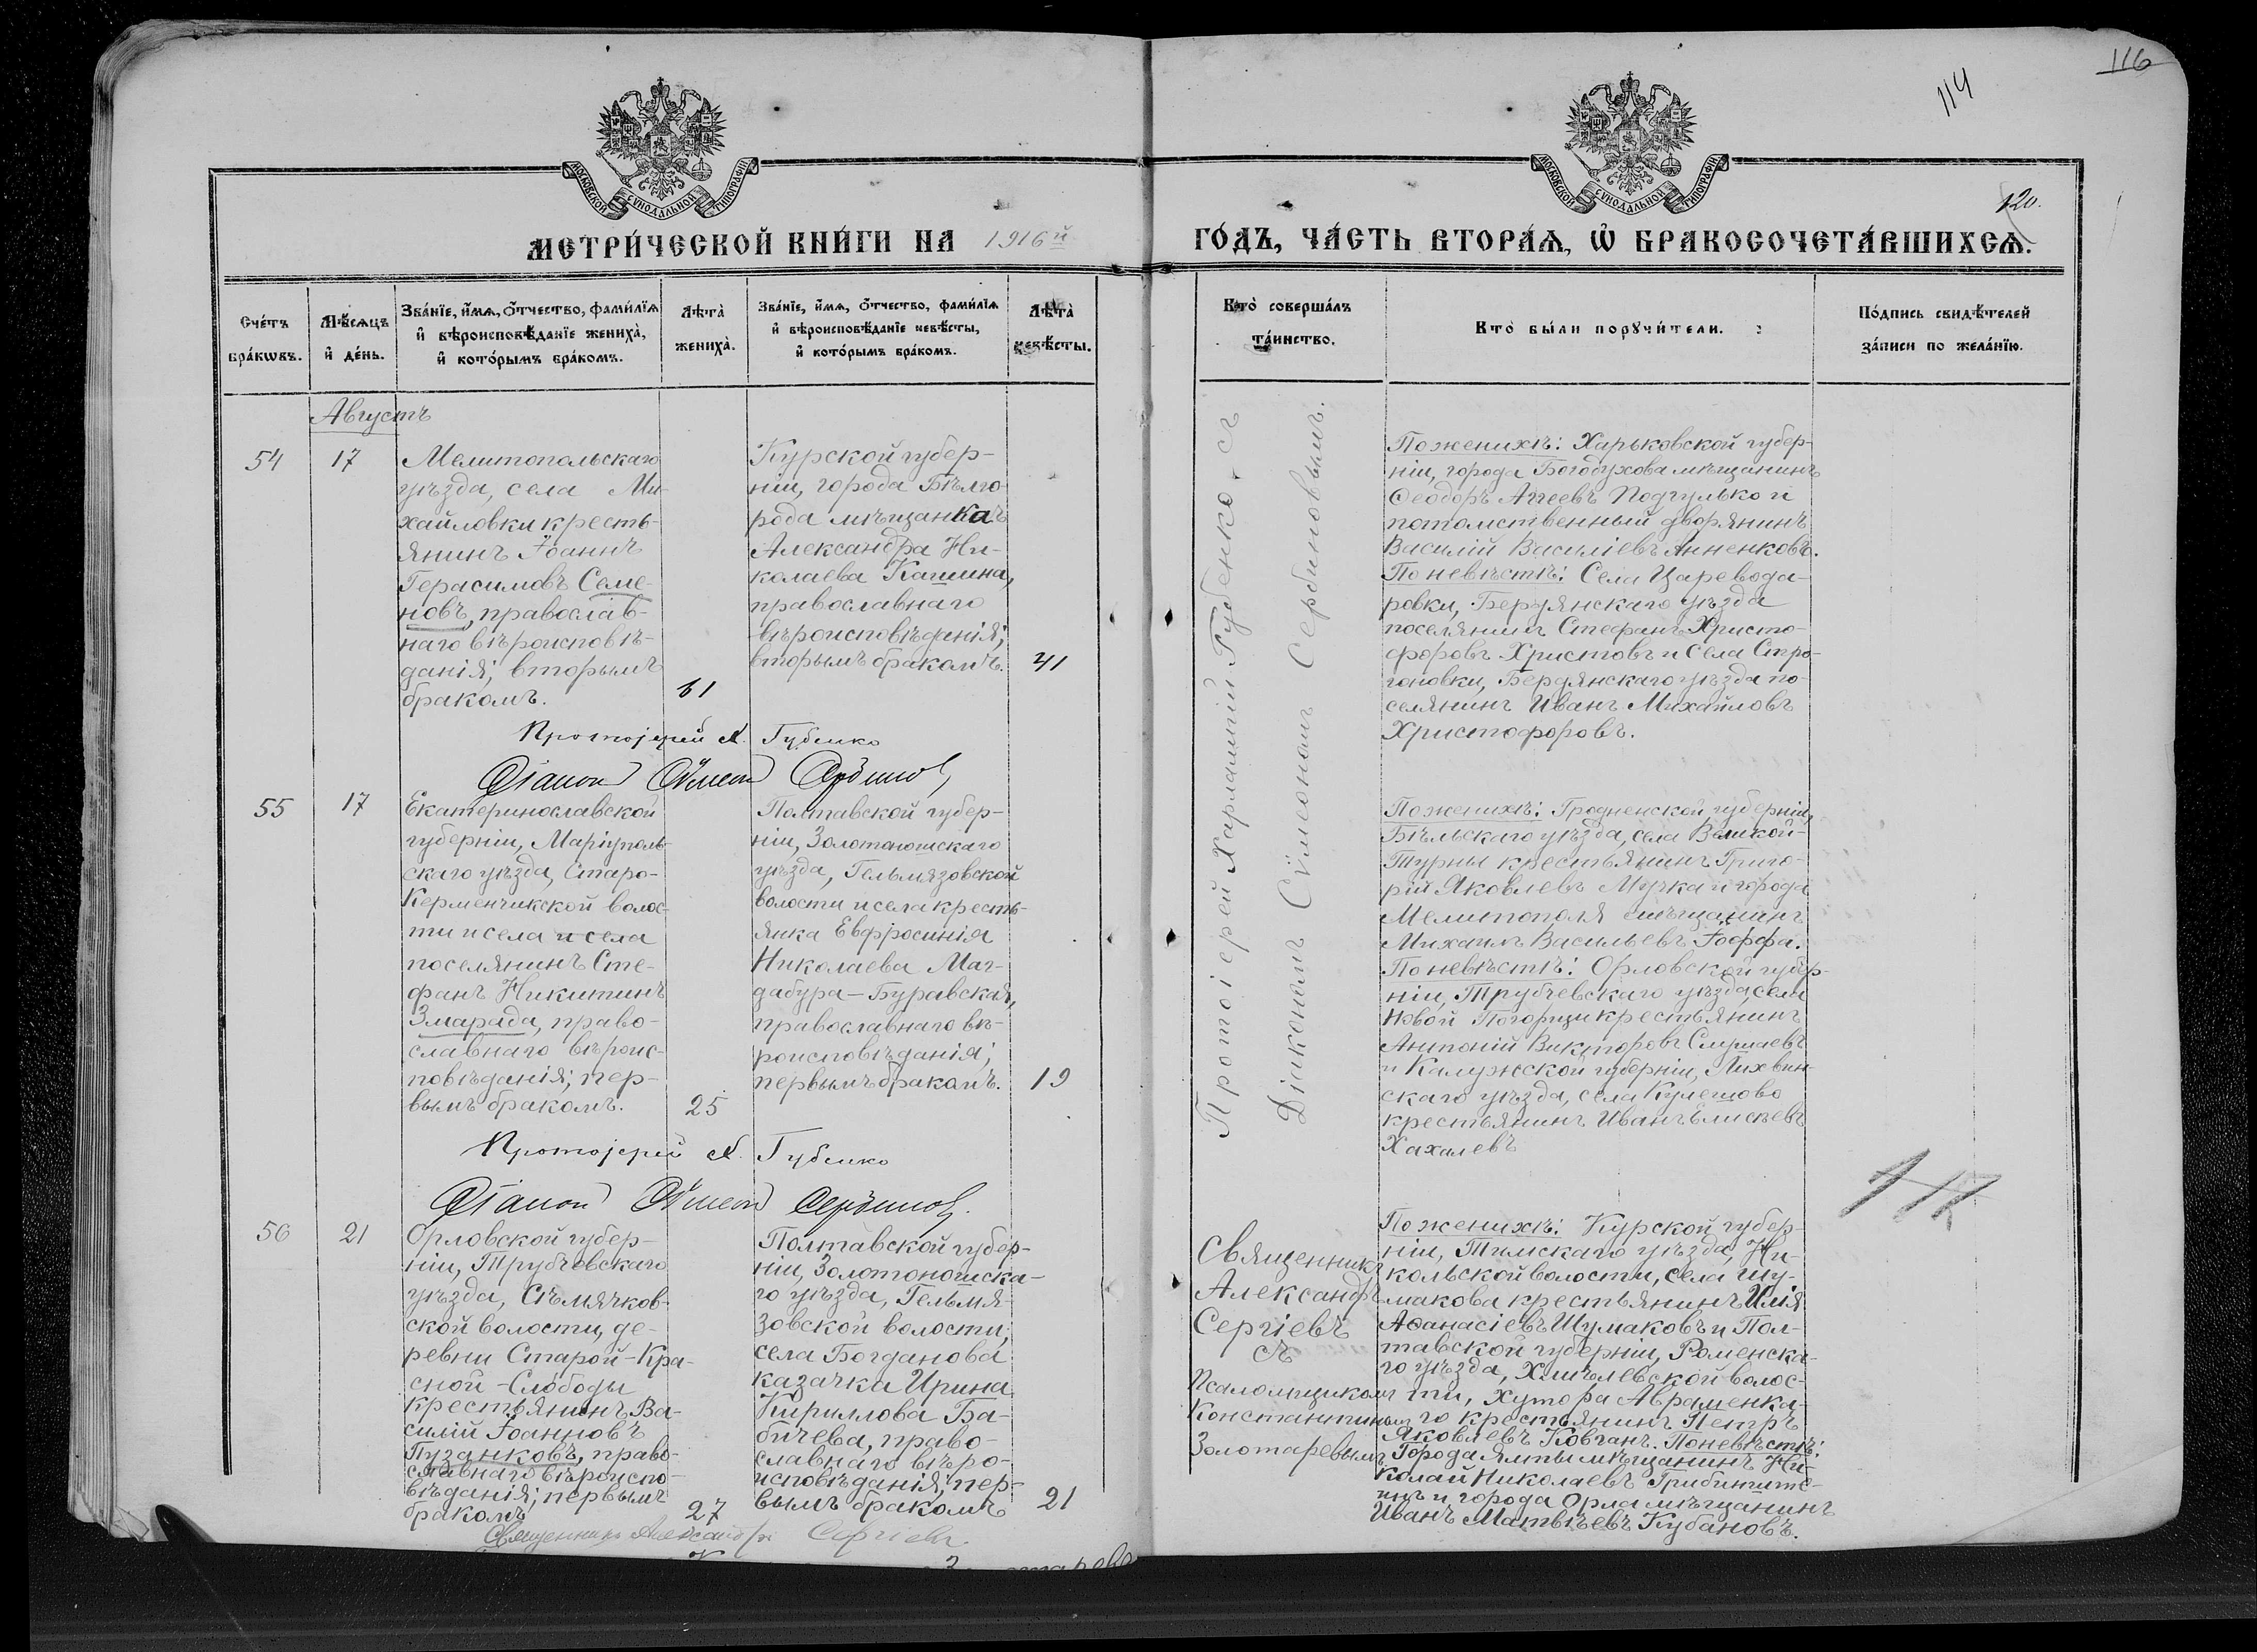 116
114
120.
МОСКОВСКОЙ СѴНОДАЛЬНОЙ ТИПОГРАФІИ
МОСКОВСКОЙ СѴНОДАЛЬНОЙ ТИПОГРАФІИ
МЕТРИ́ЧЕСКОЙ КНИ́ГИ НА 1916й
ГО́ДЪ, ЧА́СТЬ ВТОРА́Ѧ, Ѽ БРАКОСОЧЕТА́ВШИХСѦ.
Сче́тъ
бра́кѡвъ.
Мѣ́сѧцъ
и҆ де́нь.
Зва́нїе, и҆́мѧ, ѻ҆́тчество, фами́лїѧ
и҆ вѣроисповѣ́данїе жениха̀,
и҆ кото́рымъ бра́комъ.
Лѣта̀
жениха̀.
Зва́нїе, и҆́мѧ, ѻ҆́тчество, фами́лїѧ
и҆ вѣроисповѣ́данїе невѣ́сты,
и҆ кото́рымъ бра́комъ.
Лѣта̀
невѣ́сты.
Кто̀ соверша́лъ
та́инство.
Кто̀ бы́ли порꙋчи́тели.
По́дпись свидѣ́телей
за́писи по жела́нїю.
Августъ
54
17
Мелитопольскаго
уѣзда, села Ми-
хайловки кресть-
янинъ Іоаннъ
Герасимовъ Семе-
новъ, православ-
наго вѣроисповѣ-
данія; вторымъ
бракомъ.
61
Курской губер-
ніи, города Бѣлго-
рода мѣщанка
Александра Ни-
колаева Кашина,
православнаго
вѣроисповѣданія;
вторымъ бракомъ.
41
Протоіерей Харлампій Губенко съ
Діакономъ Сѵмеономъ Сербиновымъ.
По женихѣ: Харьковской губер-
ніи, города Богодухова мѣщанинъ
Ѳеодоръ Аггеевъ Подгулько и
потомственный дворянинъ
Василій Василіевъ Анненковъ.
По невѣстѣ: Села Царевода-
ровки, Бердянскаго уѣзда
поселянинъ Стефанъ Христо-
форовъ Христовъ и села Стро-
гоновки, Бердянскаго уѣзда по-
селянинъ Иванъ Михайловъ
Христофоровъ.
Протоіерей Х. Губенко
Діаконъ Сѵмеонъ Сербиновъ
55
17
Екатеринославской
губерніи, Маріуполь-
скаго уѣзда, Старо-
Керменчикской волос-
ти и села и села
поселянинъ Сте-
фанъ Никитинъ
Змарада, право-
славнаго вѣроис-
повѣданія; пер-
вымъ бракомъ.
25
Полтавской губер-
ніи, Золотоношскаго
уѣзда, Гельмязовской
волости и села кресть-
янка Евфросинія
Николаева Маг-
дабура-Буравская,
православнаго вѣ-
роисповѣданія;
первымъ бракомъ.
19
По женихѣ: Гродненской губерніи,
Бѣльскаго уѣзда, села Великой-
Турны крестьянинъ Григо-
рій Яковлевъ Мучка и города
Мелитополя мѣщанинъ
Михаилъ Васильевъ Іоффа.
По невѣстѣ: Орловской губер-
ніи, Трубчевскаго уѣзда, села
Новой Погорщи крестьянинъ
Антоній Викторовъ
и Калужской губерніи, Лихвин-
скаго уѣзда, села Кулешово
крестьянинъ Иванъ Елисѣевъ
Хахалевъ
Протоіерей Х. Губенко
Діаконъ Сѵмеонъ Сербиновъ.
56
21
Орловской губер-
ніи, Трубчевскаго
уѣзда, Сѣмячков-
ской волости, де-
ревни Старой-Кра-
сной-Слободы
крестьянинъ Ва-
силій Іоанновъ
Пузанковъ, право-
славнаго вѣроиспо-
вѣданія; первымъ
бракомъ
27
Полтавской губер-
ніи, Золотоношска-
го уѣзда, Гельмя-
зовской волости,
села Богданова
казачка Ирина
Кириллова Ба-
бичева, право-
славнаго вѣро-
исповѣданія; пер-
вымъ бракомъ
21
Священникъ
Александръ
Сергіевъ
съ
Псаломщикомъ
Константиномъ
Золотаревымъ
По женихѣ: Курской губер-
ніи, Тимскаго уѣзда, Ни-
кольской волости, села Шу-
макова крестьянинъ Илія
Аѳанасіевъ Шумаковъ и Пол-
тавской губерніи, Роменска-
го уѣзда, Хмѣлевской волос-
ти, хутора Авраменка-
го крестьянинъ Петръ
Яковлевъ Ковганъ. По невѣстѣ:
Города Ялты мѣщанинъ Ни-
колай Николаевъ
и города Орла мѣщанинъ
Иванъ Матвѣевъ Кубановъ.
Священникъ Александръ Сергіевъ